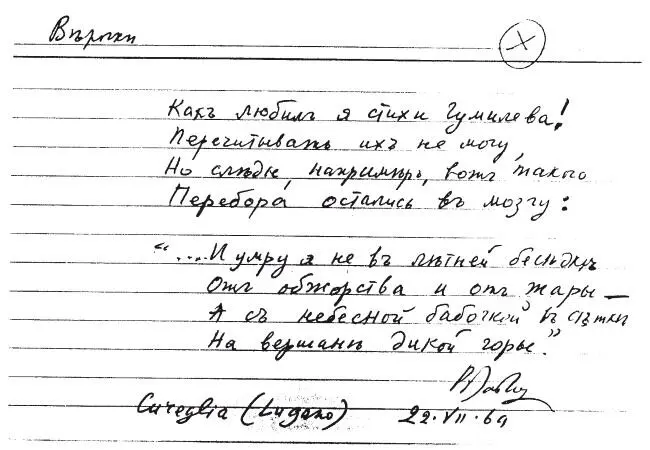 X
Какъ любилъ я стихи Гумилева!
Перечитывать ихъ не могу,
Но слѣды, напримѣръ, вотъ такого
Перебора остались въ мозгу:
"....И умру я не въ лѣтней бесѣдкѣ
Отъ обжорства и отъ жары —
А съ небесной бабочкой въ сѣткѣ
На вершинѣ дикой горы."
Cureglia (Lugano) 22.VII.69